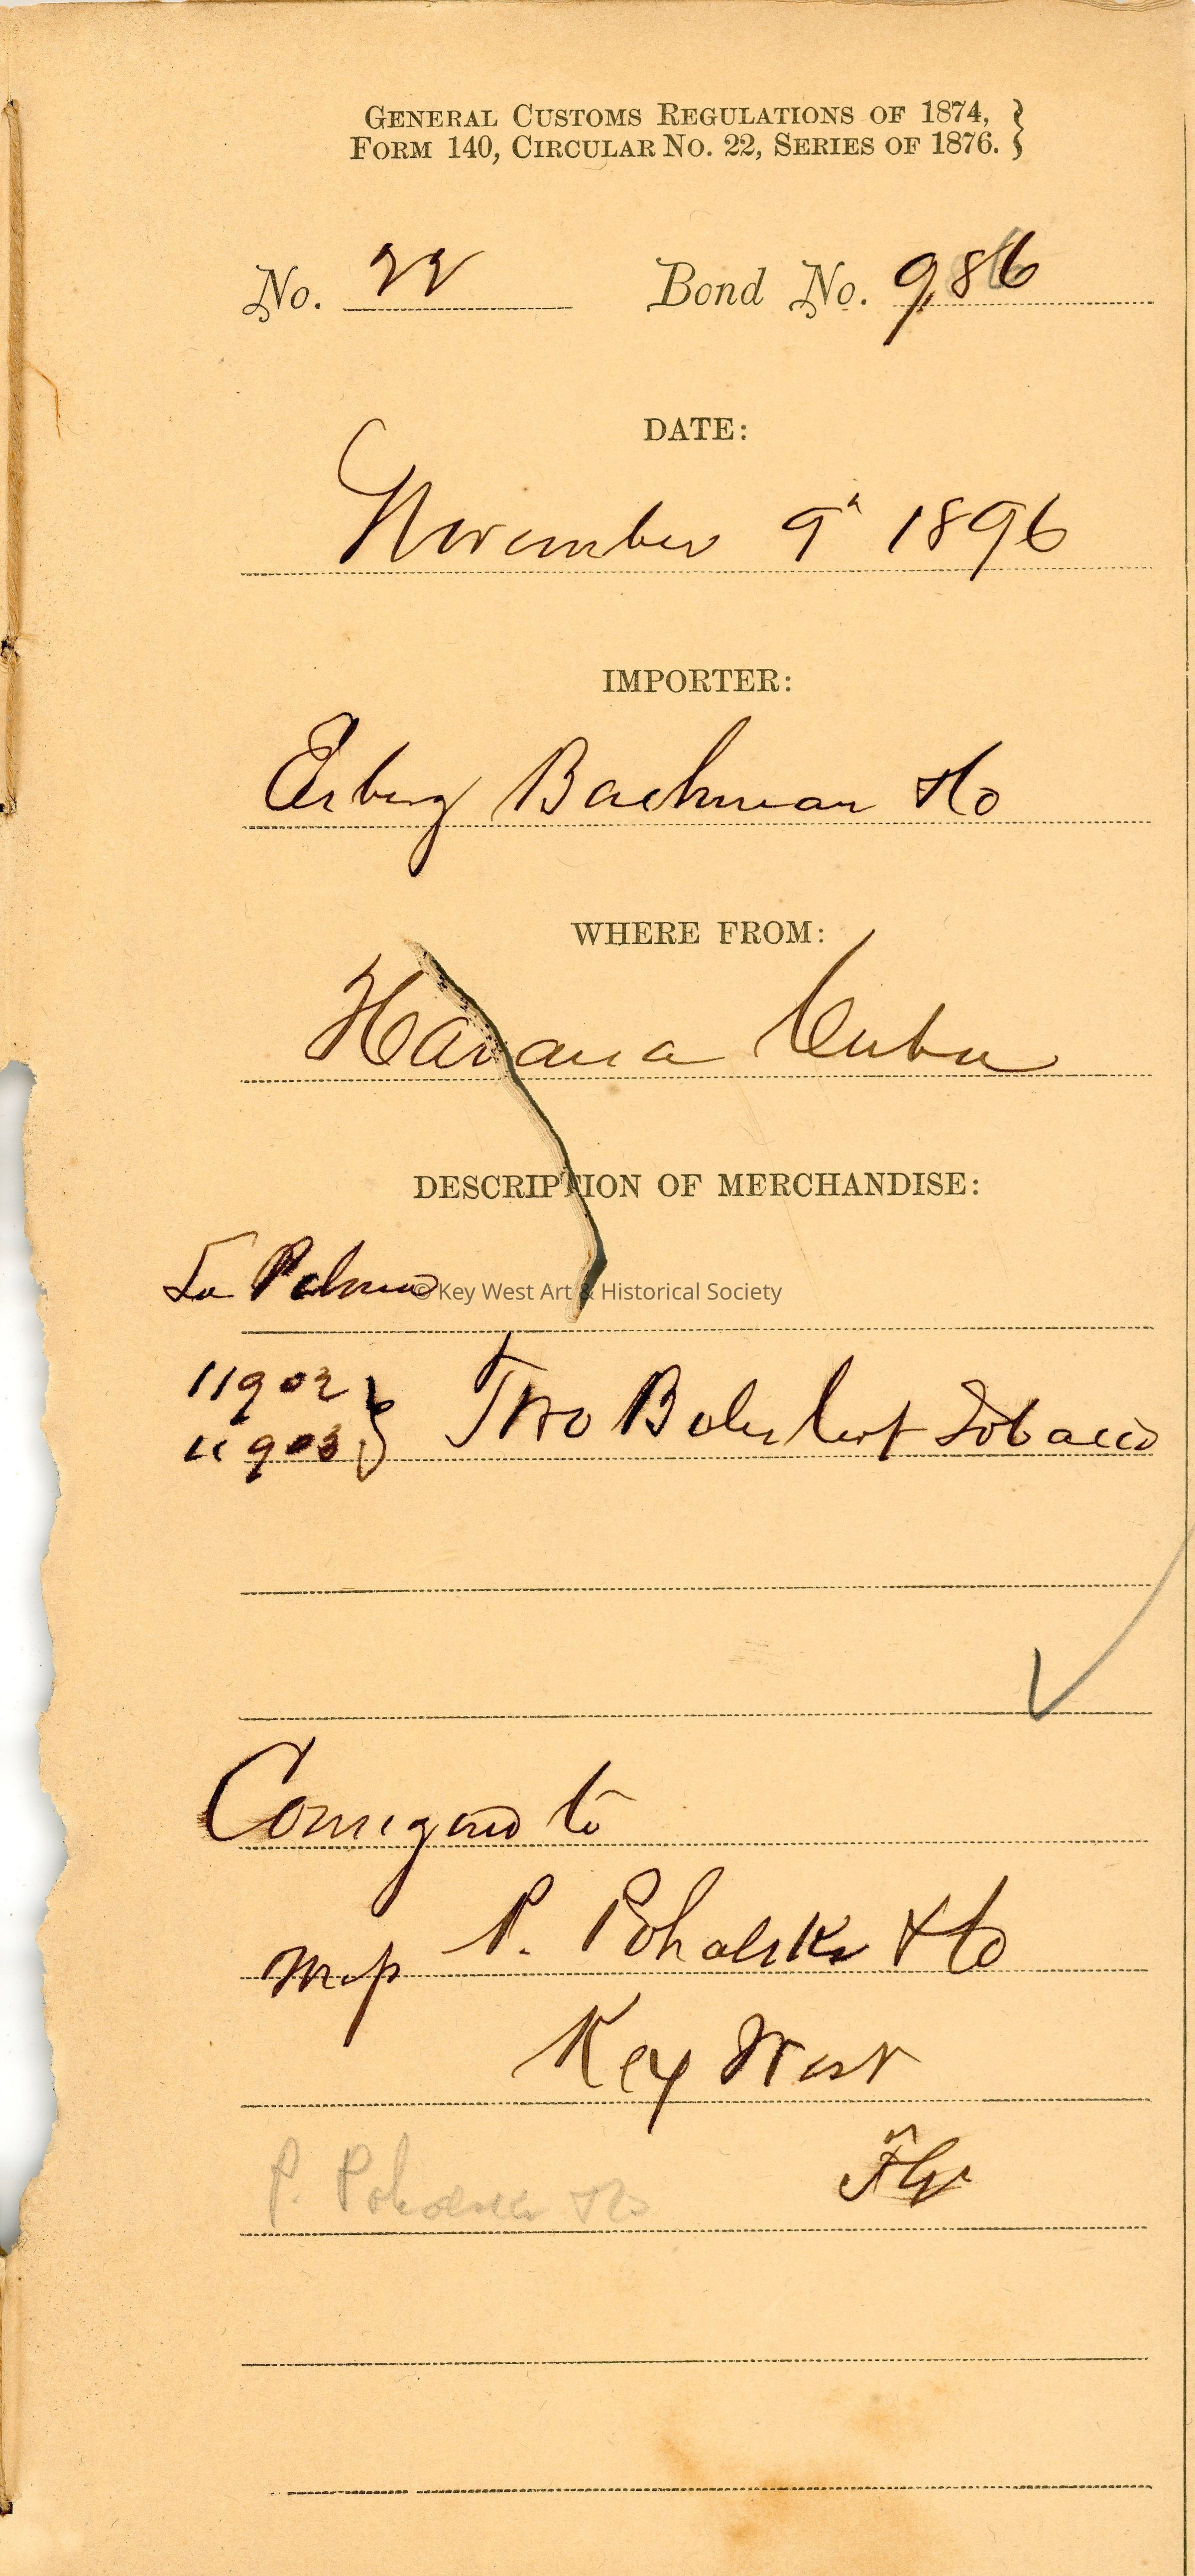 GENERAL CUSTOMS REGULATIONS OF 1874,
FORM 140, CIRCULAR NO. 22, SERIES OF 1876.
No. 22 Bond No. 986
DATE:
November 9" 1896
IMPORTER:
Bachman & Co
WHERE FROM:
Havana Cuba
DESCRIPTION OF MERCHANDISE:
La Palma
© Key West Art & Historical Society
11902
11903 } Two Bales leaf Tobacco
Consigned to
P. Pohalski & Co
Key West
Fla
P. Pohalski & Co